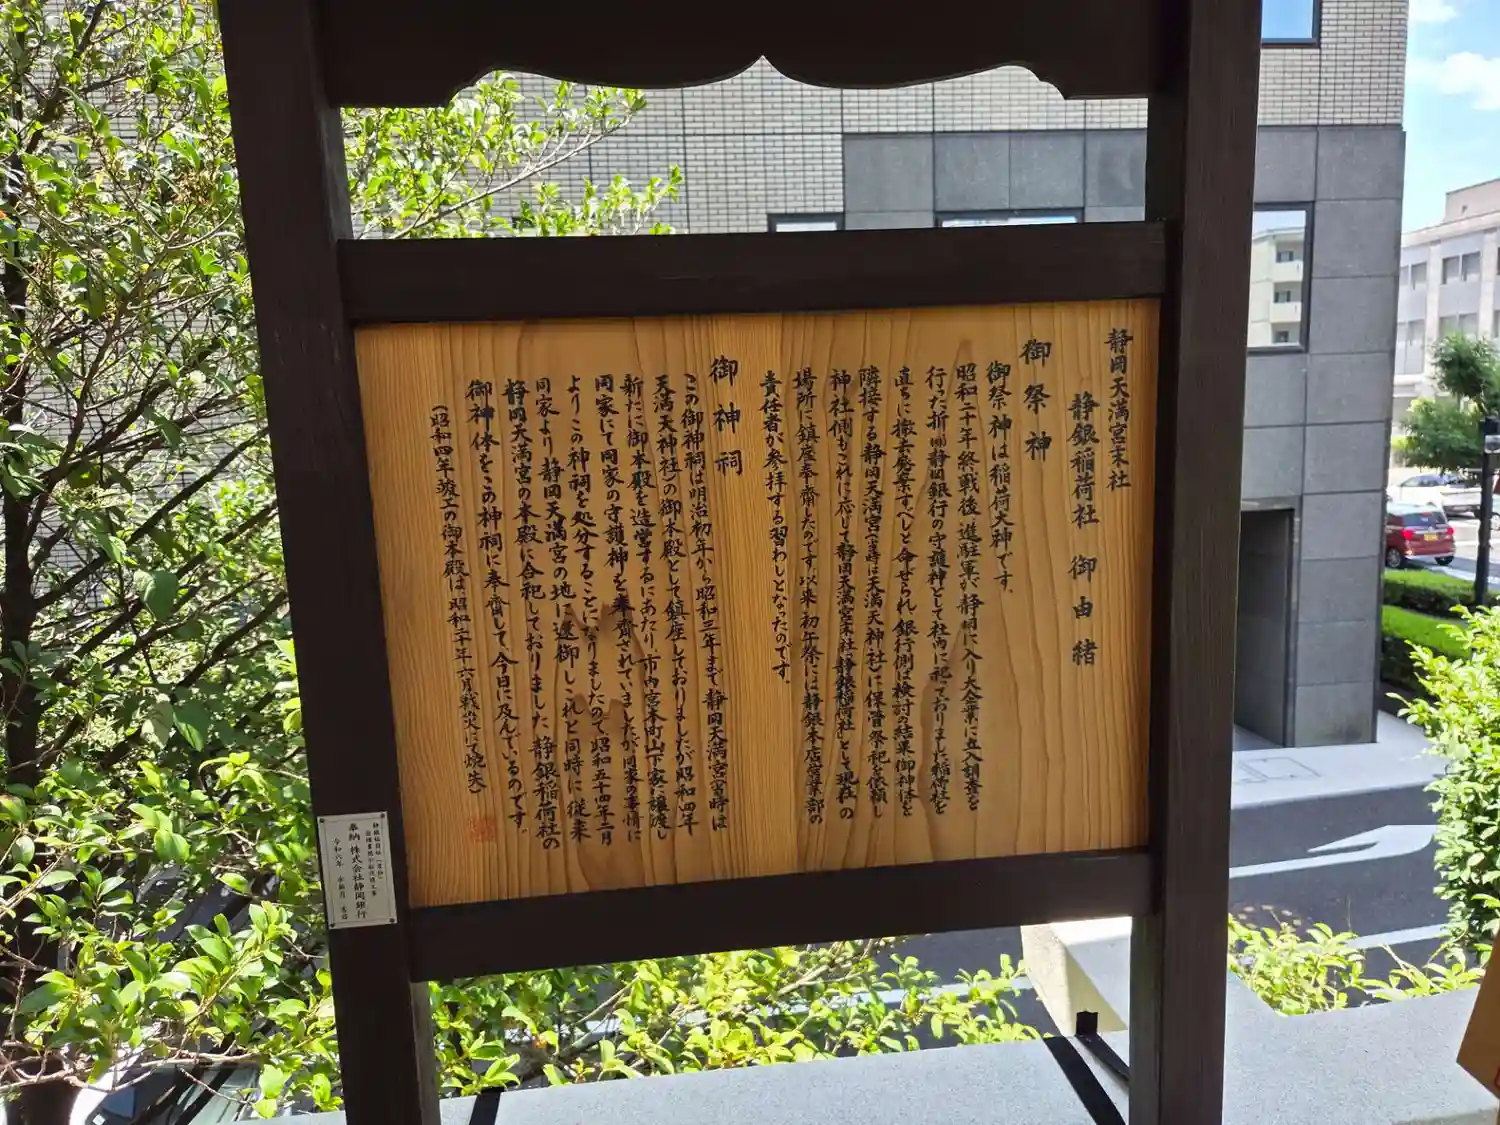 静岡天満宮末社
静銀稲荷社 御由緒
御祭神
御祭神は稲荷大神です。
昭和二十年終戦後、進駐軍が静岡に入り大企業に立入調査を
行った折、㈱静岡銀行の守護神として社内に祀っておりました稲荷社を
直ちに撤去廃棄すべしと命ぜられ、銀行側は検討の結果、御神体を
隣接する静岡天満宮(当時は天満天神社)に保管祭祀を依頼し
神社側もこれに応じて静岡天満宮末社静銀稲荷社として現在の
場所に鎮座奉齋したのです。以来、初午祭には静銀本店営業部の
責任者が参拝する習わしとなったのです。
御神祠
この御神祠は明治初年から昭和三年まで静岡天満宮(当時は
天満天神社)の御本殿として鎮座しておりましたが昭和四年
新たに御本殿を造営するにあたり、市内宮本町山下家に譲渡し
同家にて同家の守護神を奉齋されていましたが同家の事情に
よりこの神祠を処分することになりましたので、昭和五十四年二月
同家より静岡天満宮の地に遷御しこれと同時に従来
静岡天満宮の本殿に合祀しておりました静銀稲荷社の
御神体をこの神祠に奉齋して、今日に及んでいるのです。
(昭和四年竣工の御本殿は、昭和二十年六月戦災にて焼失)
奉納 株式会社静岡銀行
令和六年 吉日